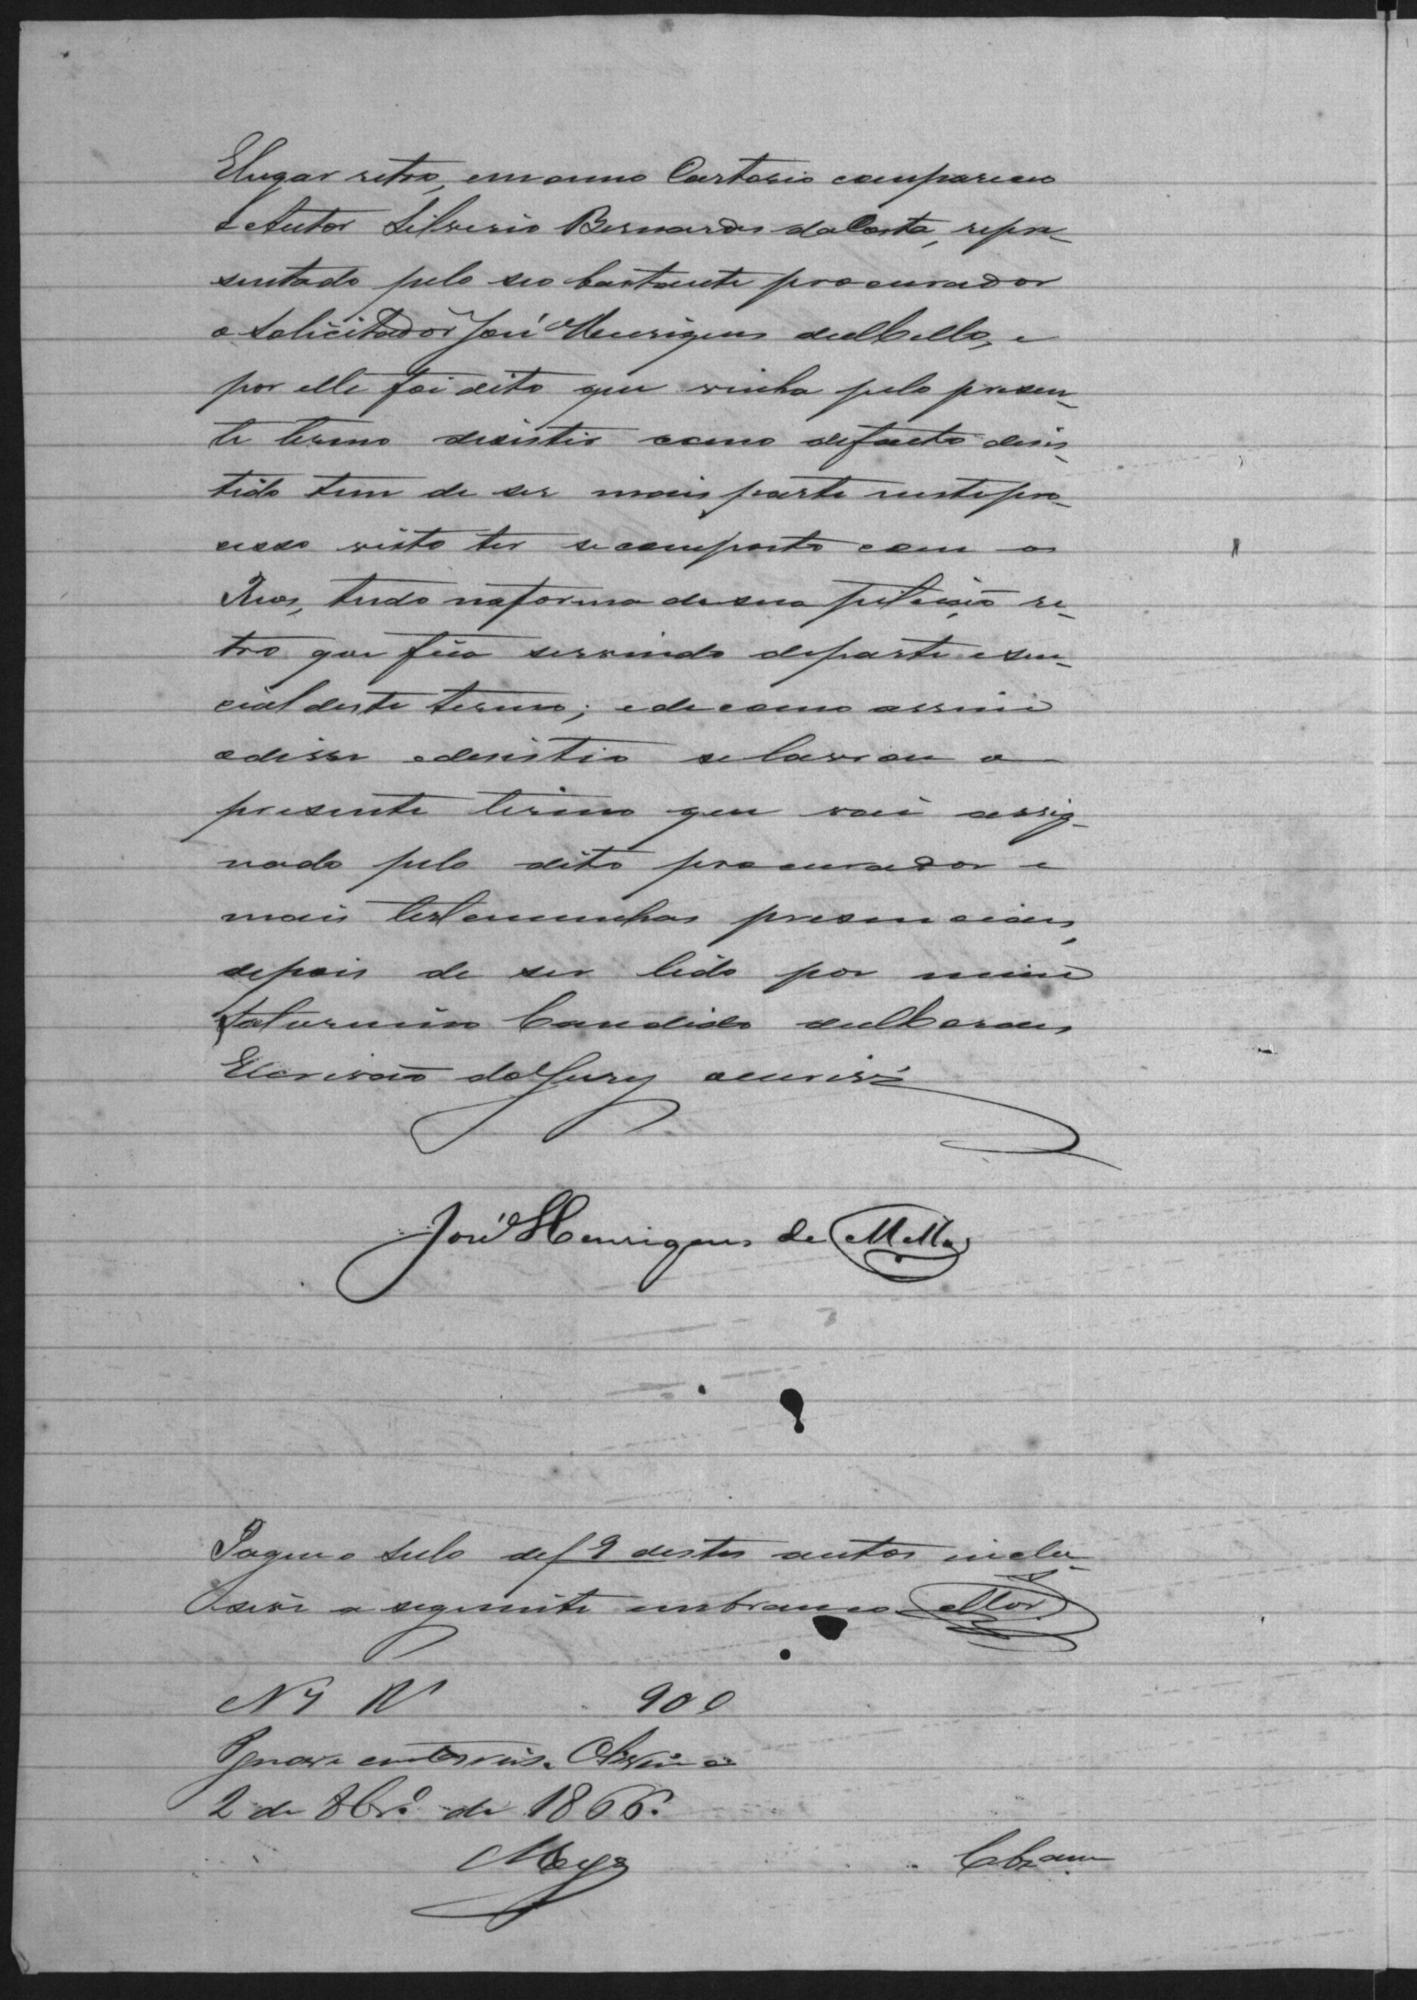 E lugar retro, em omeo Cartorio compareceo
o Autor Silverio Bernardes da Costa, repre-
sentado pelo seo bastante procurador
o Solicitador José Henriques de Mello, e
por elle foi dito que vinha pelo presen-
te termo desistir como de facto desis-
tido tem de ser mais parte neste pro-
cesso visto ter se composto com os
Reos, tudo na forma de sua petição re-
tro que fica servindo de parte essen-
cial deste termo; e de como assim
o disse e desistio se lavrou o
presente termo que vai assig-
nado pelo dito procurador e
mais testemunhas presenciaes,
depois de ser lido por mim
Saturnino Candido de Moraes
Escrivão do Jury o escrevi
José Henriques de Mello
Pague o sello de f 9 destes autos inclu-
sive a seguinte em branco Mor
N 4 R 900
Pg novecentos reis.
2 de 8br.o de 1866.